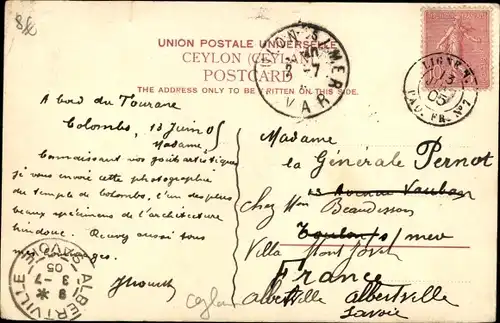 UNION POSTALE UNIVERSELLE
CEYLON (CEYLAN)
POSTCARD
THE ADDRESS ONLY TO BE WRITTEN ON THIS SIDE.
LIGNE N
13
05
PAQ. FR. Nº 7
VAR
A bord du Tourane
Colombo, 13 Juin 05
Madame,
Connaissant vos goûts artistiques
je vous envoie cette photographie
du temple de Colombo, l'un des plus
beaux spécimens de l'architecture
hindoue. Recevez aussi tous
Madame
la Générale Pernot
13 Avenue Vauban
Chez Mon Beaudesson
Toulon s/mer
Villa
France
Albertville Albertville
Savoie
Ceylan
ALBERTVILLE
3 -7
05
SAVOIE